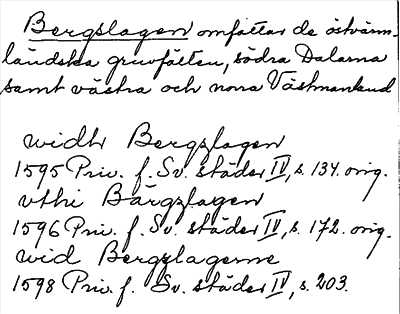 Bergslagen omfattar de östvärm-
ländska gruvfälten, södra Dalarna
samt västra och norra Västmanland
widh Bergzlagen
1595 Priv. f. Sv. städer IV, s. 134. orig.
vthi Bärgzlagen
1596 Priv. f. Sv. städer IV, s. 172. orig.
wid Bergzlagenne
1598 Priv. f. Sv. städer IV, s. 203.